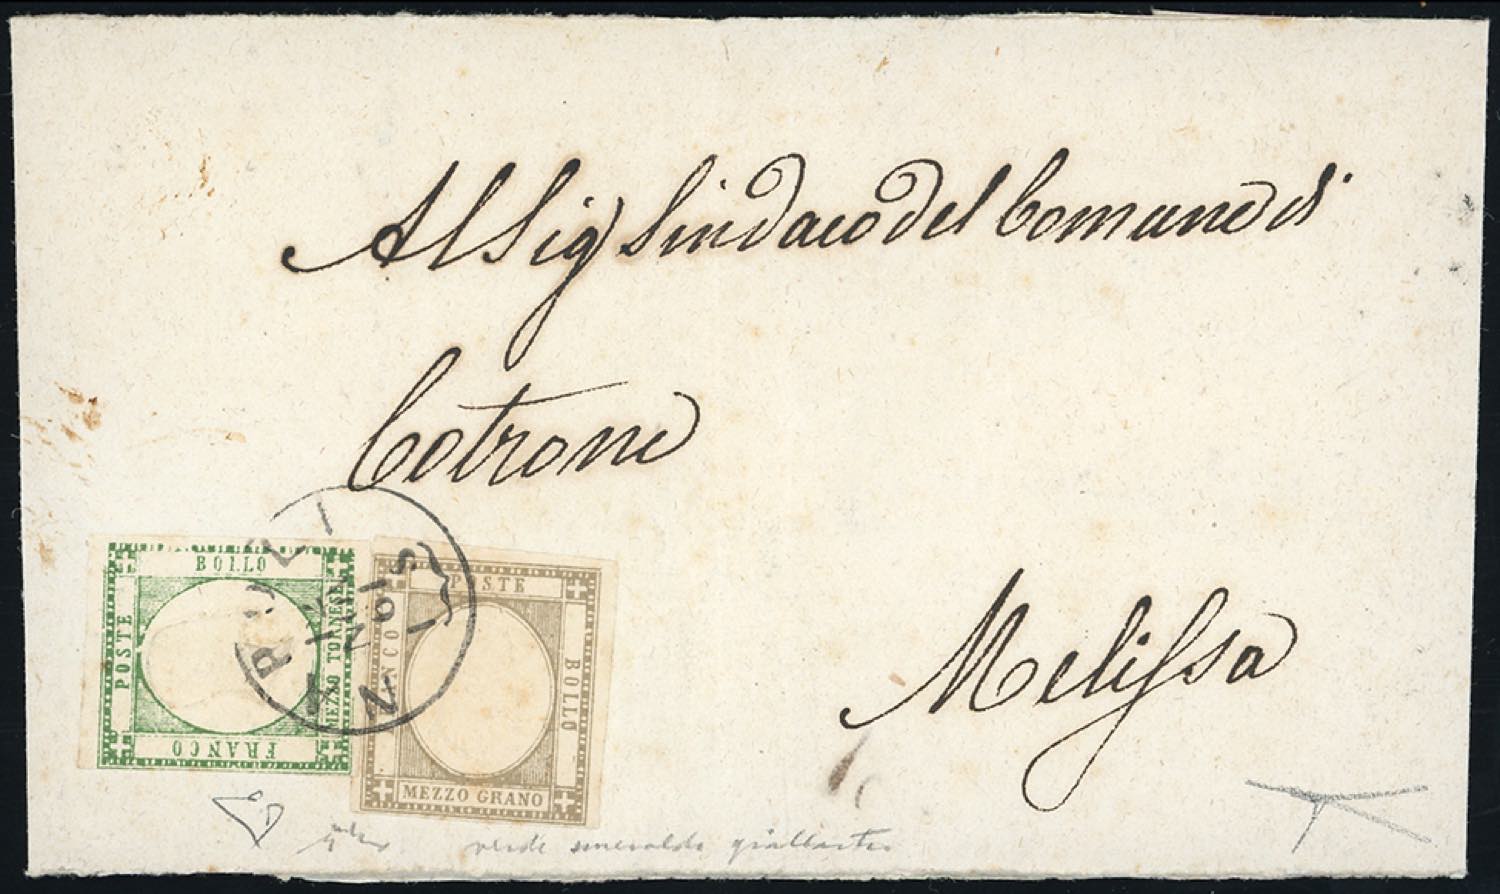 Al Sig Sindaco del Comune di
Cotrone
Melissa
BOLLO
POSTE
MEZZO TORNESE
FRANCO
POSTE
BOLLO
MEZZO GRANO
NAPOLI
verde smeraldo giallastro